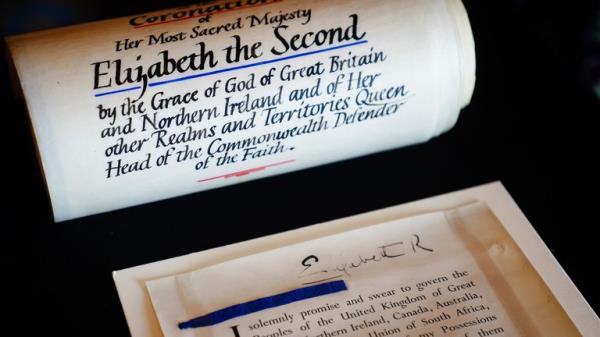 Coronation
of
Her Most Sacred Majesty
Elizabeth the Second
by the Grace of God of Great Britain
and Northern Ireland and of Her
other Realms and Territories Queen
Head of the Commonwealth Defender
of the Faith.
Elizabeth R
I solemnly promise and swear to govern the
Peoples of the United Kingdom of Great
Northern Ireland, Canada, Australia,
Union of South Africa,
my Possessions
of them